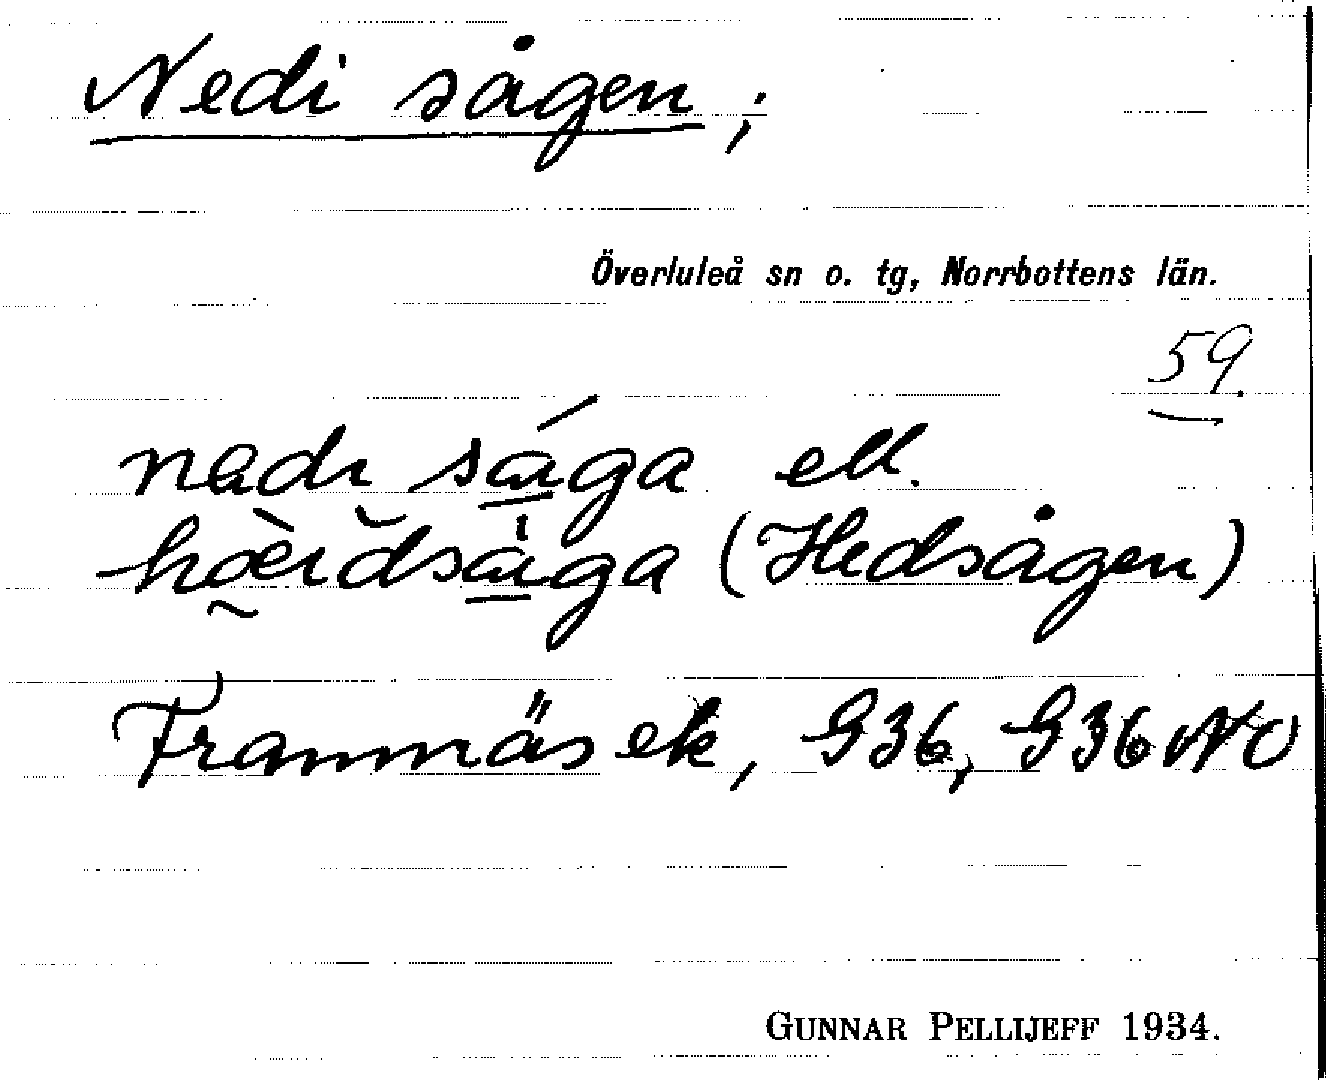 Nedi sågen;
Överluleå sn o. tg, Norrbottens län.
59.
nedi såga ell.
(Hedsågen)
Framnäs ek, G36, G36 NO
GUNNAR PELLIJEFF 1934.